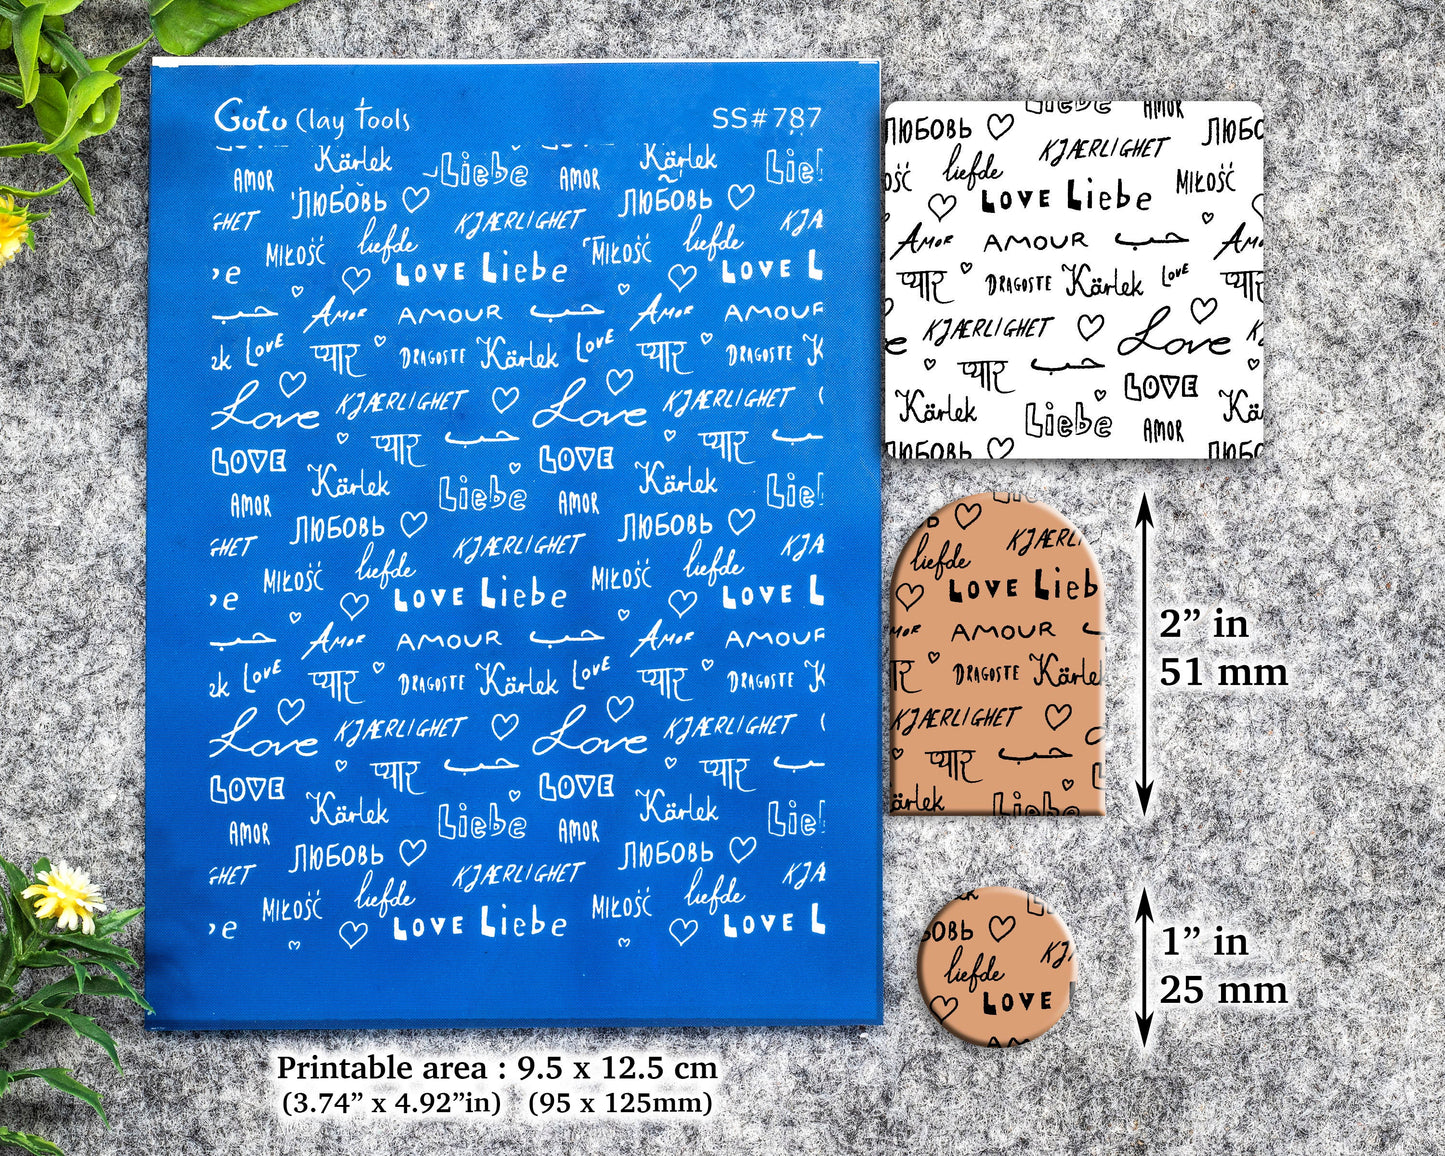 Goto Clay Tools SS#787
Kärlek Liebe Kärlek Lie
AMOR AMOR
ЛЮБОВЬ ЛЮБОВЬ
GHET KJÆRLIGHET KJÆ
MIŁOŚĆ liefde MIŁOŚĆ liefde
e LOVE Liebe LOVE L
حب AMOR AMOUR حب AMOR AMOUR
ek LOVE प्यार DRAGOSTE Kärlek LOVE प्यार DRAGOSTE K
Love KJÆRLIGHET Love KJÆRLIGHET
LOVE प्यार حب LOVE प्यार حب
Kärlek Liebe Kärlek Lie
AMOR AMOR
ЛЮБОВЬ ЛЮБОВЬ
GHET KJÆRLIGHET KJÆ
MIŁOŚĆ liefde MIŁOŚĆ liefde
e LOVE Liebe LOVE L
حب AMOR AMOUR حب AMOR AMOUR
ek LOVE प्यार DRAGOSTE Kärlek LOVE प्यार DRAGOSTE K
Love KJÆRLIGHET Love KJÆRLIGHET
LOVE प्यार حب LOVE प्यार حب
Kärlek Liebe Kärlek Lie
AMOR AMOR
ЛЮБОВЬ ЛЮБОВЬ
GHET KJÆRLIGHET KJÆ
MIŁOŚĆ liefde MIŁOŚĆ liefde
e LOVE Liebe LOVE L
Liebe AMOR
ЛЮБОВЬ KJÆRLIGHET ЛЮБО
OŚĆ liefde LOVE Liebe MIŁOŚĆ
AMOR AMOUR حب AM
प्यार DRAGOSTE Kärlek LOVE प्यार
e KJÆRLIGHET Love K
प्यार حب LOVE
Kärlek Liebe AMOR Kä
ЛЮБОВЬ ЛЮБО
liefde KJÆRLI
LOVE Lieb
MOR AMOUR
DRAGOSTE Kärle
KJÆRLIGHET
प्यार حب
ärlek Liebe
2” in
51 mm
БОВЬ KJ
liefde
LOVE
AMO
1” in
25 mm
Printable area : 9.5 x 12.5 cm
(3.74” x 4.92”in) (95 x 125mm)